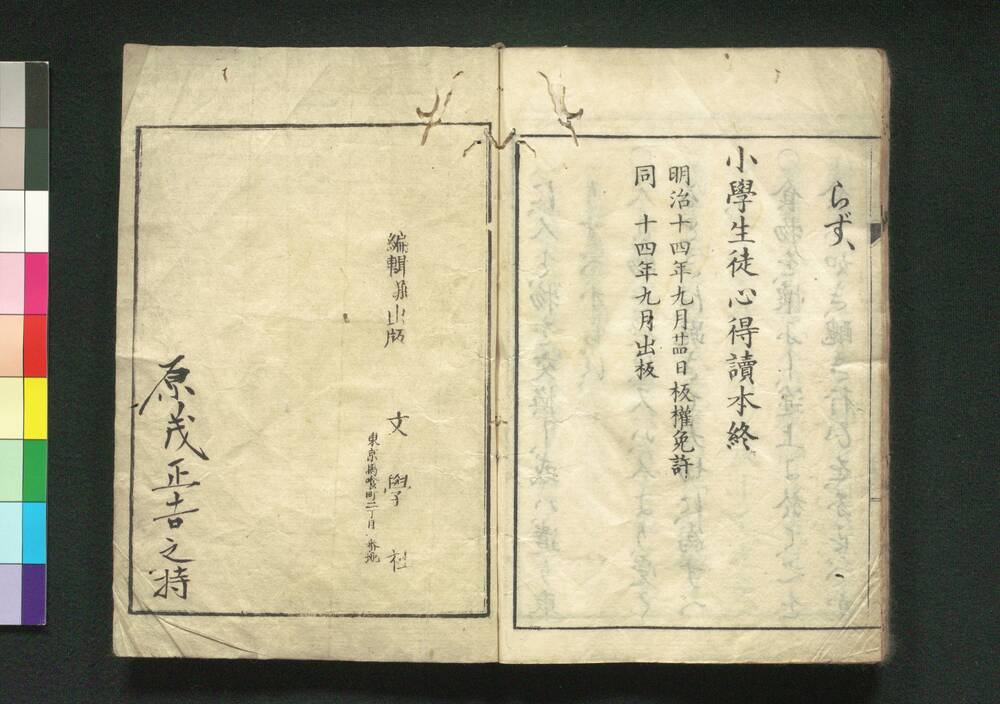 らず、
小學生徒心得讀本終
明治十四年九月廿四日板權免許
同　十四年九月出板
編輯兼出版　文學社
東京馬喰町二丁目
原茂正吉之持